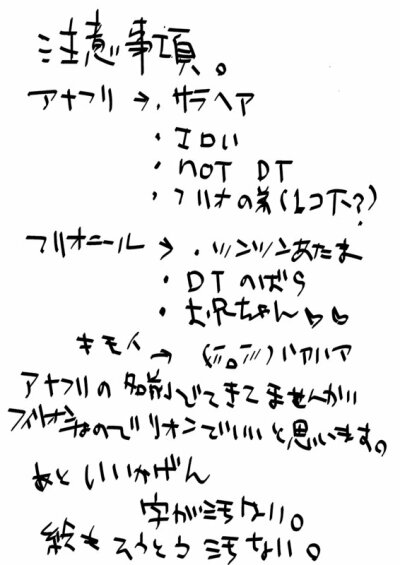 注意事項。
アナフリ → ・サラヘア
・エロい
・NOT DT
・フリオの弟(1コ下?)
フリオニール → ・ツンツンあたま
・DT のばら
・お兄ちゃん♥♥
キモイ → ハァハア
アナフリの名前でてきてませんが
なのでリオンでいいと思います。
あと いいかげん
字が汚ない。
絵もそうとう汚ない。